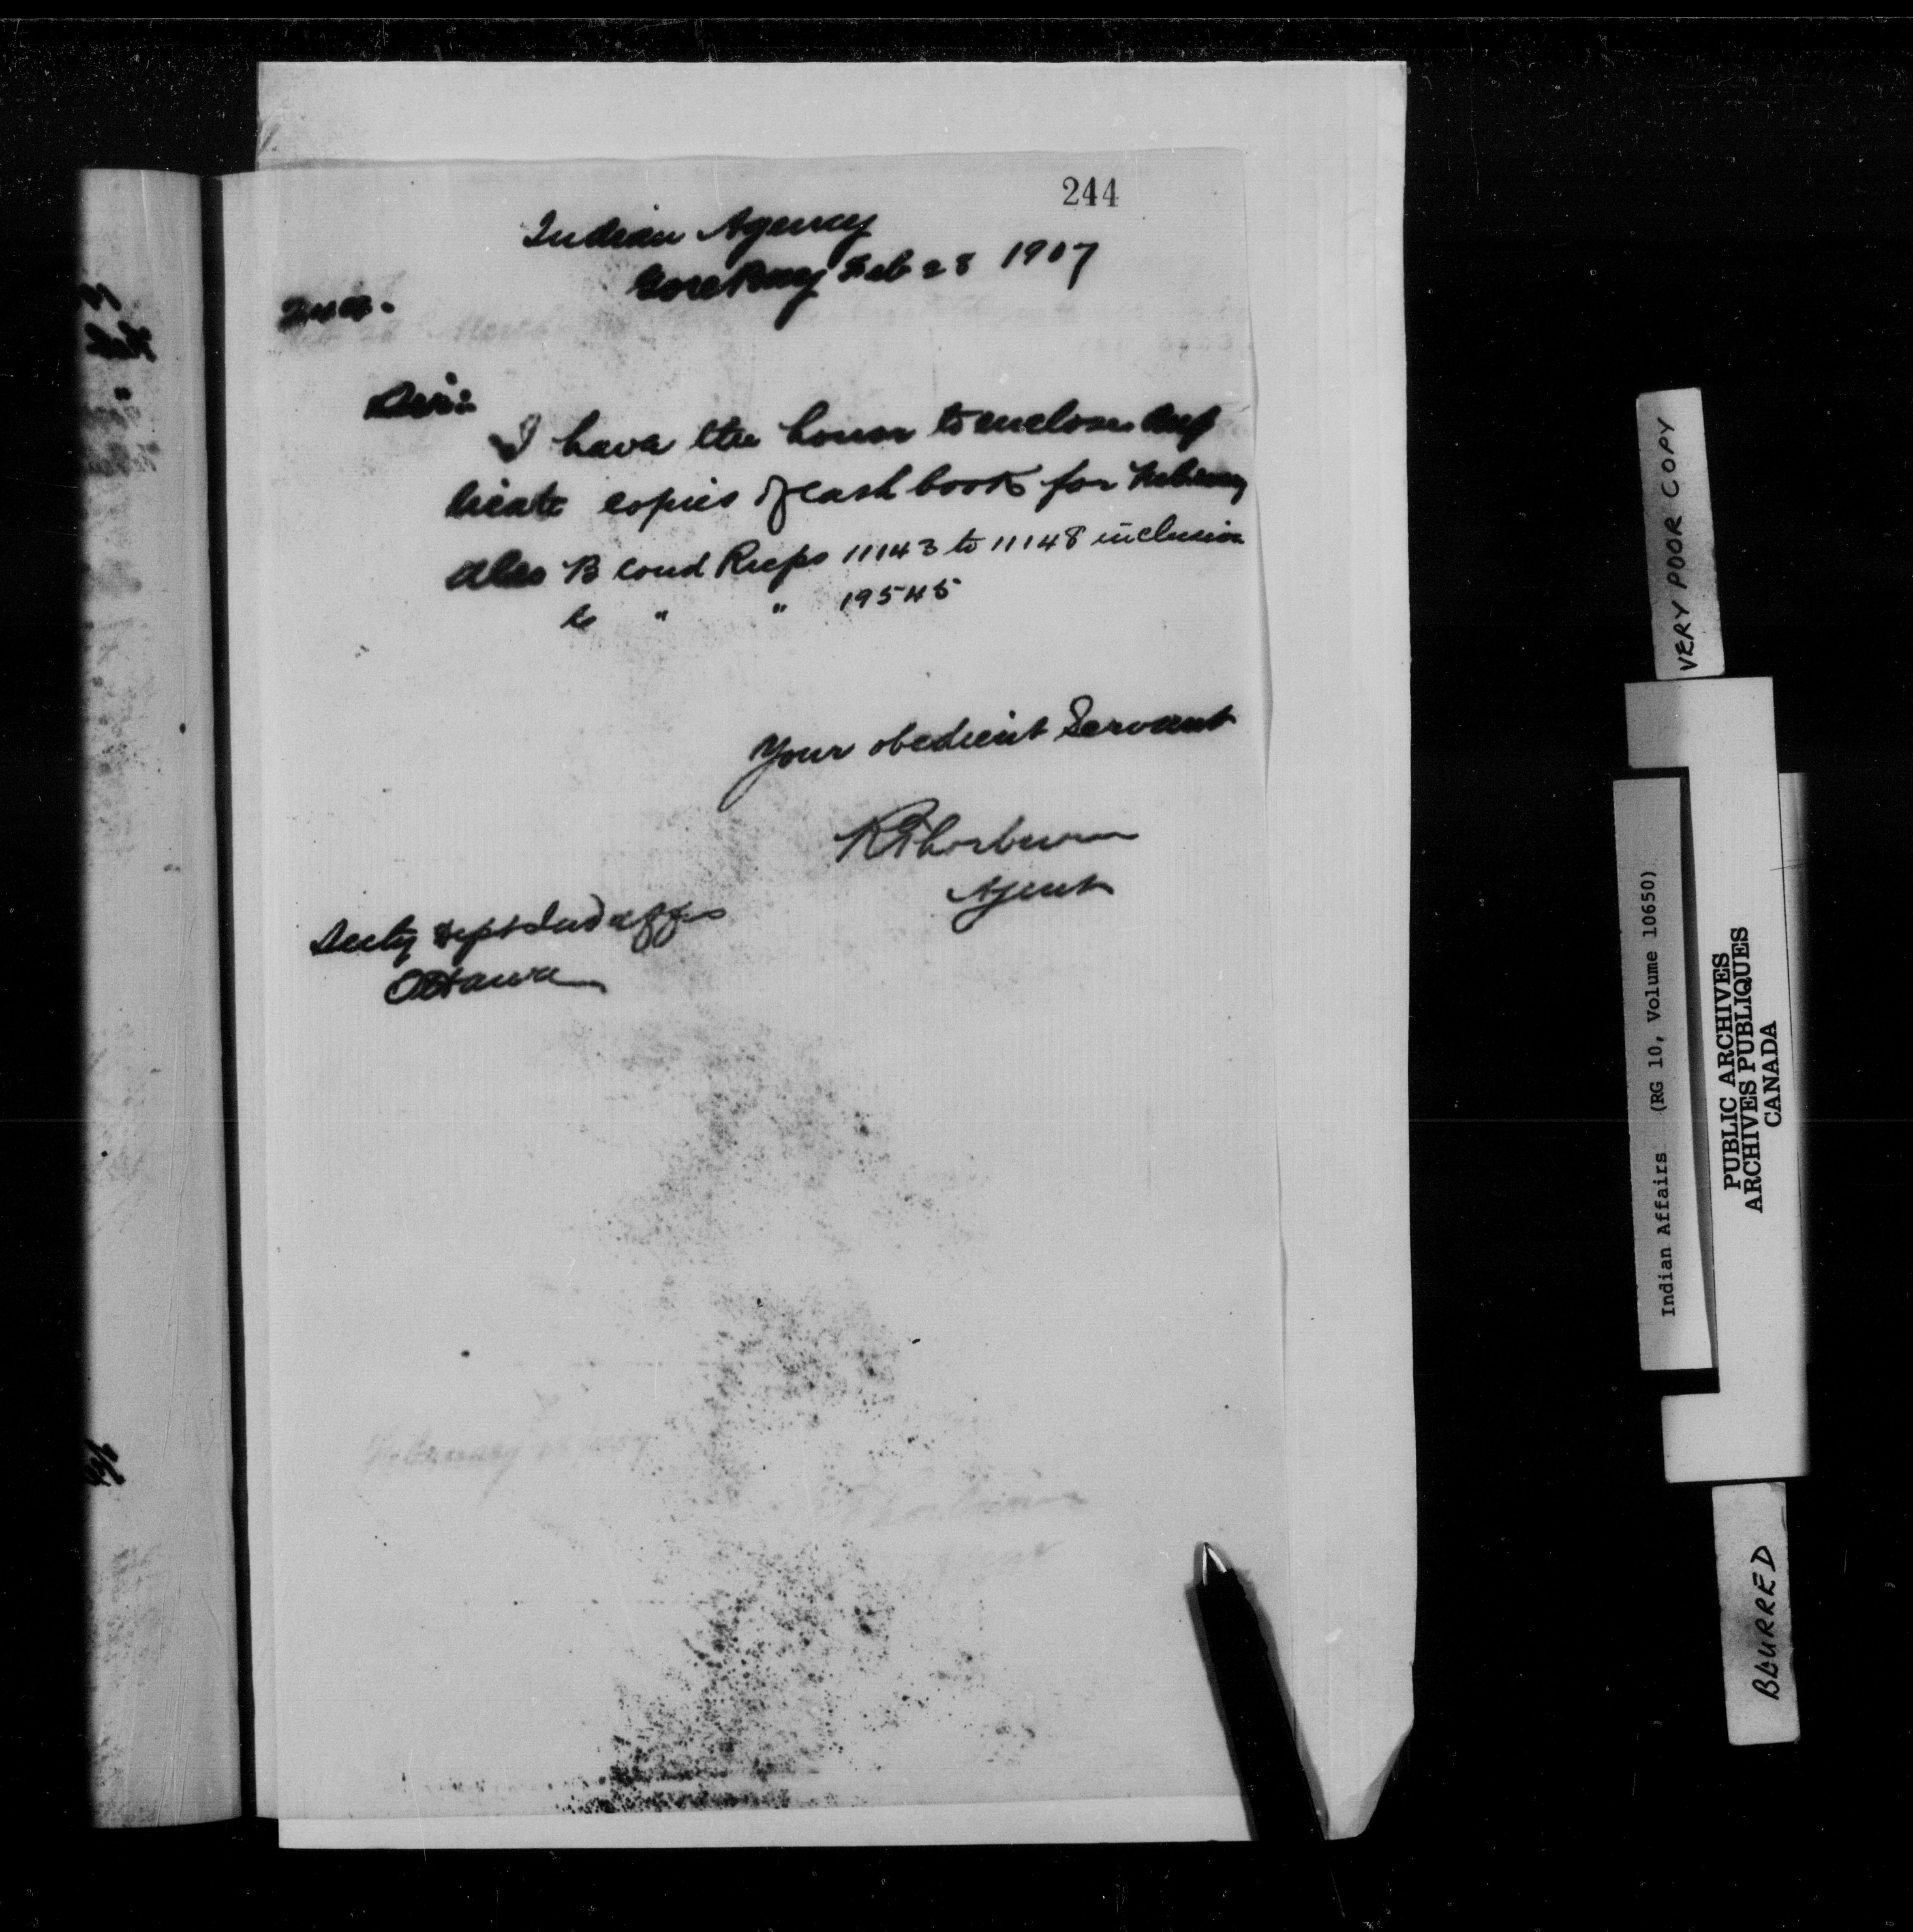 244
Indian Agency
Gore Bay Feb 28 1907
Sir:
I have the honor to enclose dup
licate copies of cash book for February
also B Cond Rceps 11143 to 11148 inclusive
C " " 19545
Your obedient Servant
R Thorburn
Agent
Secty Dept Ind Affrs
Ottawa
VERY POOR COPY
Indian Affairs (RG 10, Volume 10650)
PUBLIC ARCHIVES
ARCHIVES PUBLIQUES
CANADA
BLURRED